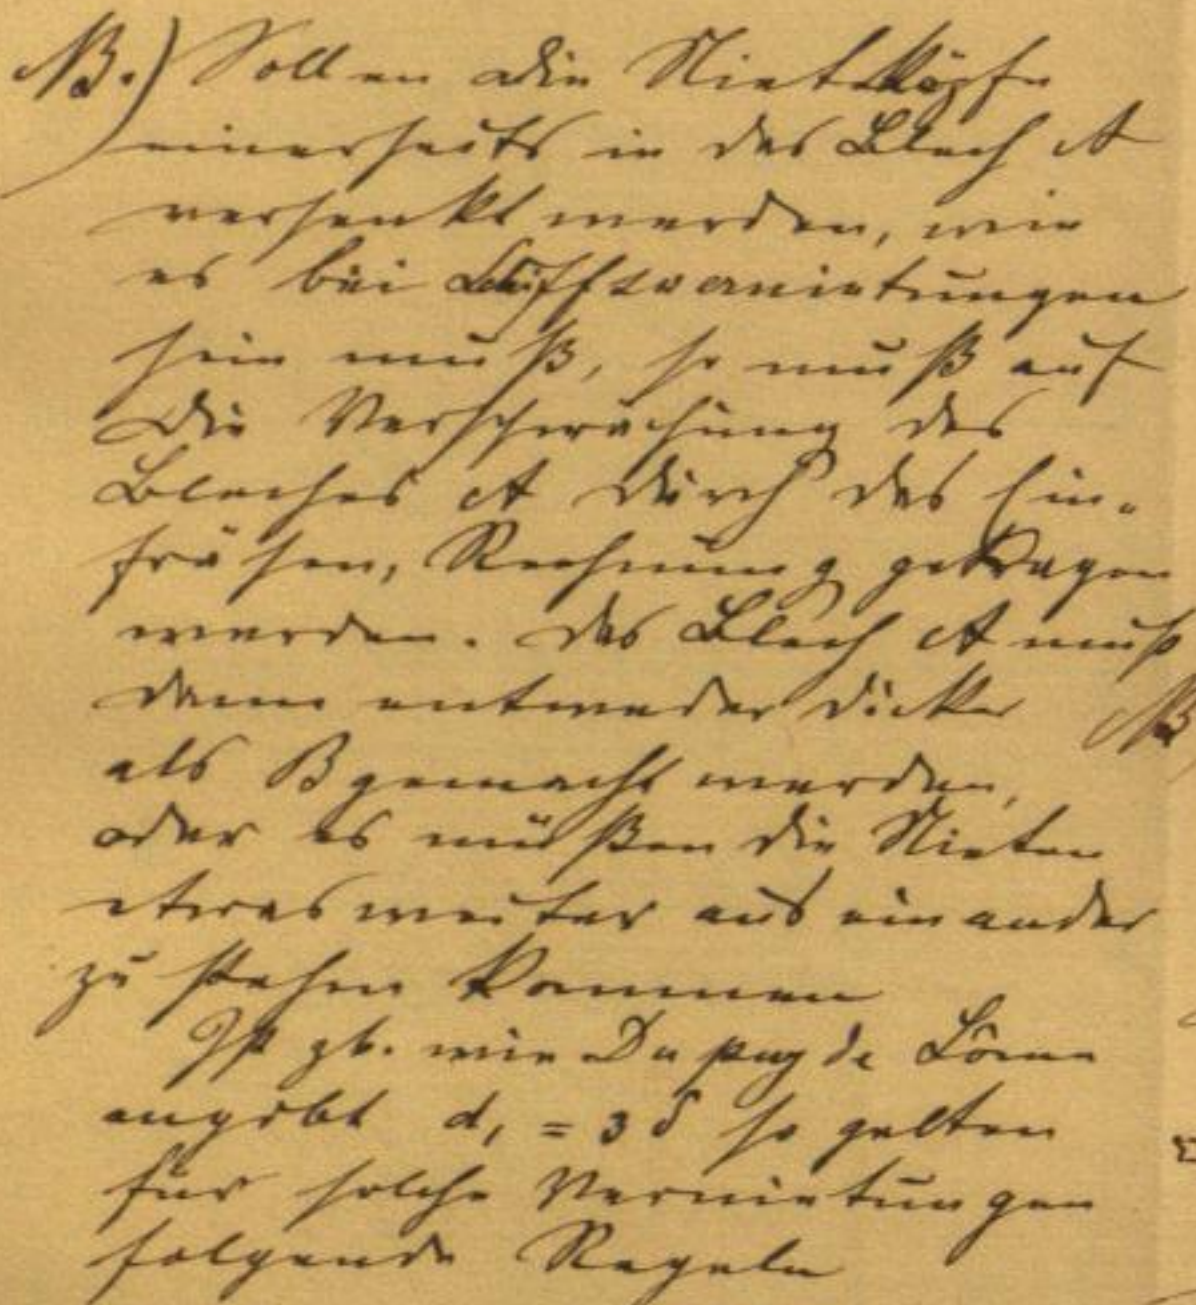 NB.) Sollen die Nietköpfe
einerseits in das Blech A
versenkt werden, wie
es bei Schiffsvernietungen
sein muß, so muß auf
die Verschwächung des
Bleches A durch das Ein-
fräsen, Rechnung getragen
werden. Das Blech A muß
dann entweder dicker
als B gemacht werden,
oder es müßen die Nieten
etwas weiter auseinander
zu stehen kommen
Ist zb. wie Dupuy de Lôme
angibt d, = 3 δ so gelten
für solche Vernietungen
folgende Regeln